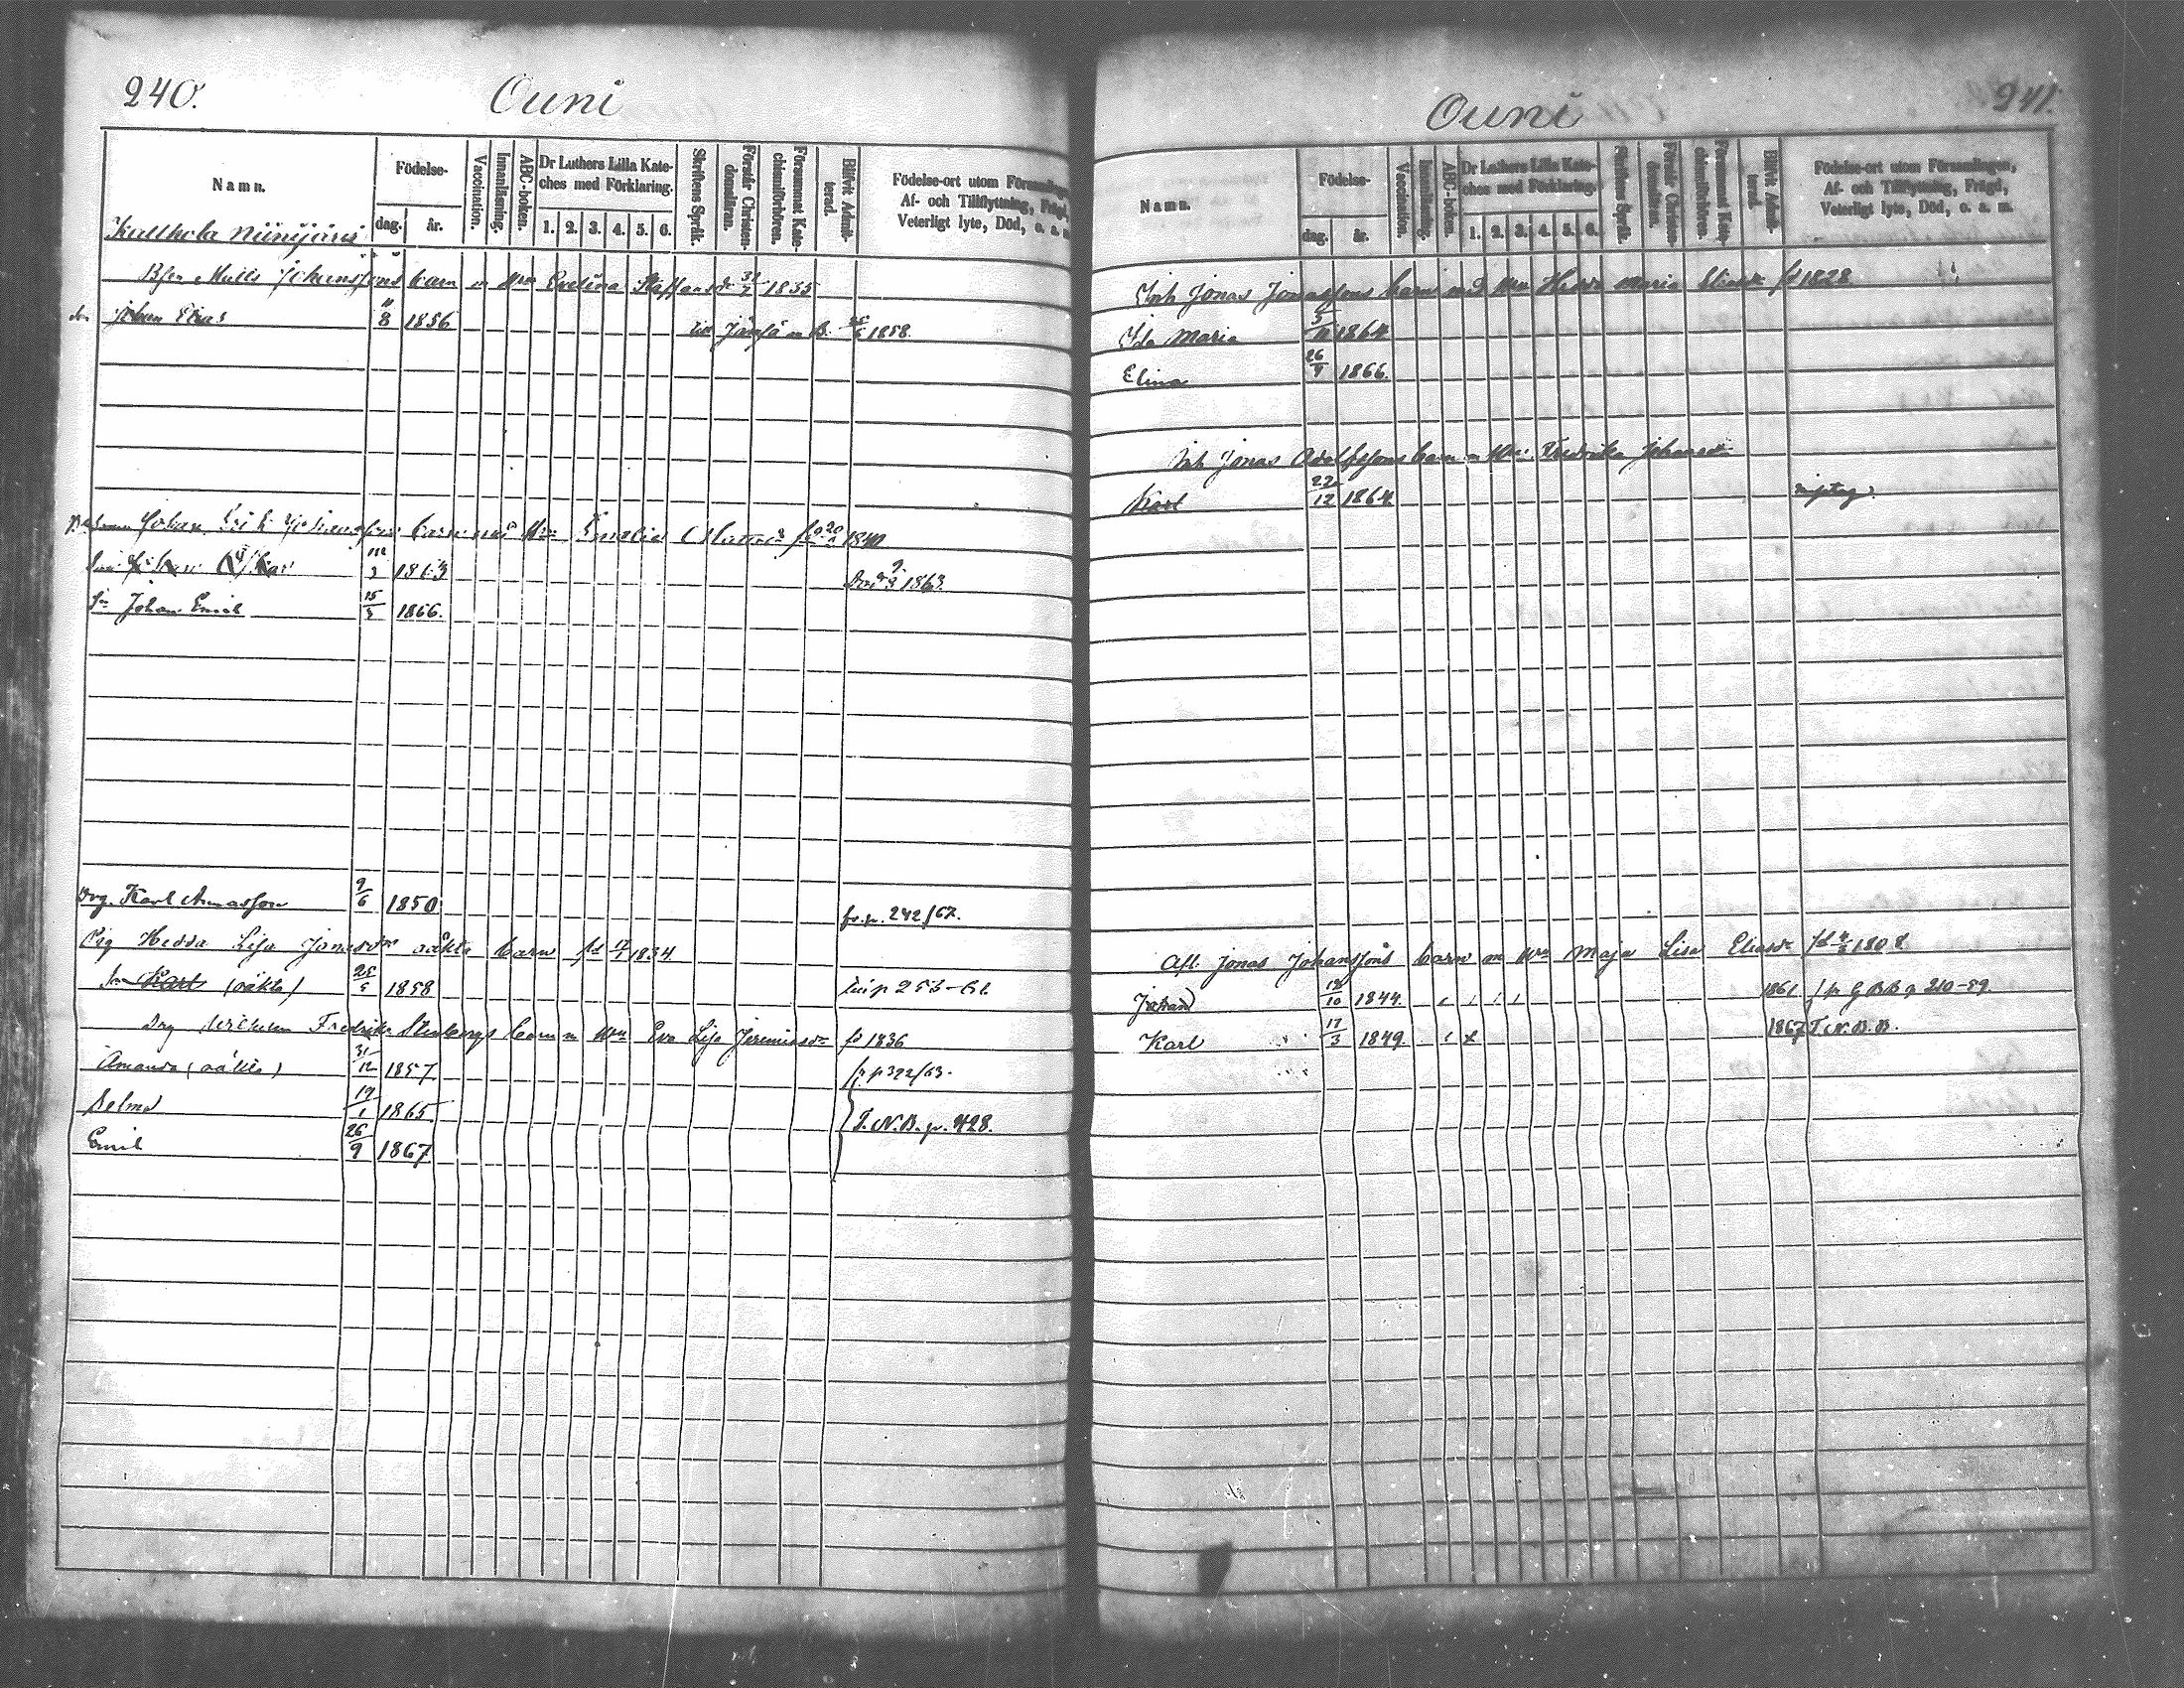 240.
Ouni
Namn.
Födelse-
dag.
år.
Vaccination.
Innanläsning.
ABC-boken.
Dr Luthers Lilla Kate-
ches med Förklaring.
1. 2. 3. 4. 5. 6.
Skriftens Språk.
Förstår Christen-
domsläran.
Försummat Kate-
chismiförhören.
Blifvit Admit-
terad.
Födelse-ort utom Församlingen,
Af- och Tillflyttning, Frägd,
Veterligt lyte, Död, o. a. m.
Kallkola Niinijärvi
Matts Johanssons barn m Hru Evelina Staffansdr 31/7 1835
Johan Elias 11/8 1856 1858.
Johan Erik Johanssons barn med Hru Emalia 1840
Oskar 1863 Död 1863.
Johan Emil 15/5 1866.
Drg. Karl 9/6 1850 fr. p. 242/67.
Pig Hedda Lisa Jonasdr oäkta barn fd 17/1 1834
Karl (oäkta) 1858
Drg Fredrik Stenbergs barn m Hru Eva Lisa Jeremiasdr fd 1836
Amanda (oäkta) 31/12 1857 fr p 322/63.
Selma 19/1 1865 T. N. B. p. 428.
Emil 26/9 1867
Ouni
241.
Namn.
Födelse-
dag.
år.
Vaccination.
Innanläsning.
ABC-boken.
Dr Luthers Lilla Kate-
ches med Förklaring.
1. 2. 3. 4. 5. 6.
Skriftens Språk.
Förstår Christen-
domsläran.
Försummat Kate-
chismiförhören.
Blifvit Admit-
terad.
Födelse-ort utom Församlingen,
Af- och Tillflyttning, Frägd,
Veterligt lyte, Död, o. a. m.
Inh Jonas Jonassons barn med Hru Hedda Maria Eliasdr fd 1828
Ida Maria 1864
Elina 26/9 1866.
Inh Jonas Adolfssons barn m Hru Fredrika Johansdr
Karl 22/12 1864
Afl. Jonas Johanssons barn m Hru Maja Lisa Eliasdr fd 1808
Johan 12/10 1844. 1861 fr G B B p 210-59.
Karl 17/3 1849 1867 T. N. B. B.